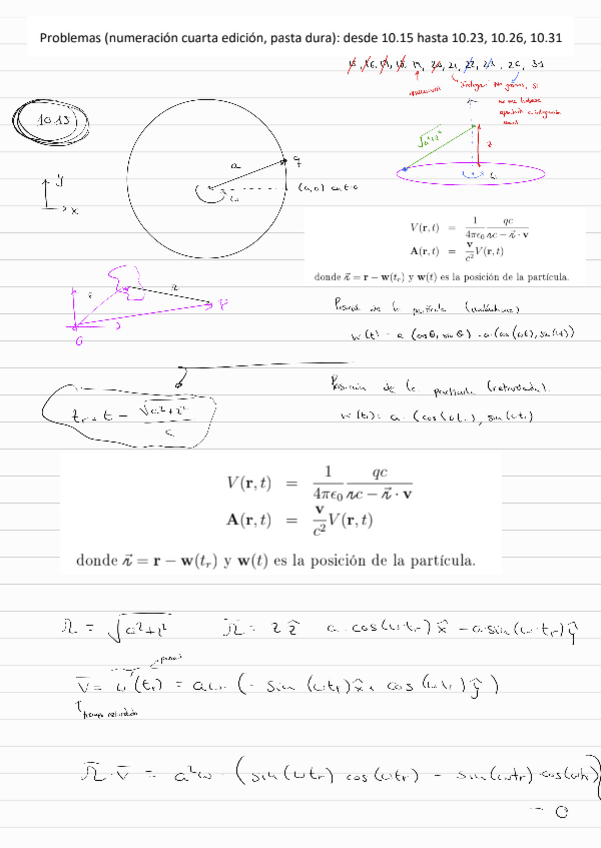 Problemas (numeración cuarta edición, pasta dura): desde 10.15 hasta 10.23, 10.26, 10.31
15, 16, 17, 18, 19, 20, 21, 22, 23, 26, 31
√a²+z²
z
10.15
a
q
ω
(a,0) en t=0
y
x
V(r, t) = 1/4πε₀ qc/(𝓇c − 𝓇⃗ · v)
A(r, t) = v/c² V(r, t)
donde 𝓇⃗ = r − w(tᵣ) y w(t) es la posición de la partícula.
P
O
Posición de la partícula
w(t) = a (cos θ, sin θ) = a (cos(ωt), sin(ωt))
Posición de la partícula (retardada).
w(tᵣ) = a (cos(ωtᵣ), sin(ωtᵣ)
tᵣ = t − √a²+z²/c
V(r, t) = 1/4πε₀ qc/(𝓇c − 𝓇⃗ · v)
A(r, t) = v/c² V(r, t)
donde 𝓇⃗ = r − w(tᵣ) y w(t) es la posición de la partícula.
𝓇 = √a²+z² 𝓇⃗ = z ẑ a cos(ωtᵣ) x̂ − a sin(ω tᵣ) ŷ
punto
v̄ = ω̇(tᵣ) = aω (− sin(ωtᵣ) x̂ + cos(ωtᵣ) ŷ)
tiempo retardado
𝓇⃗ · v̄ = a²ω (sin(ωtᵣ) cos(ωtᵣ) − sin(ωtᵣ) cos(ωtᵣ)
= 0